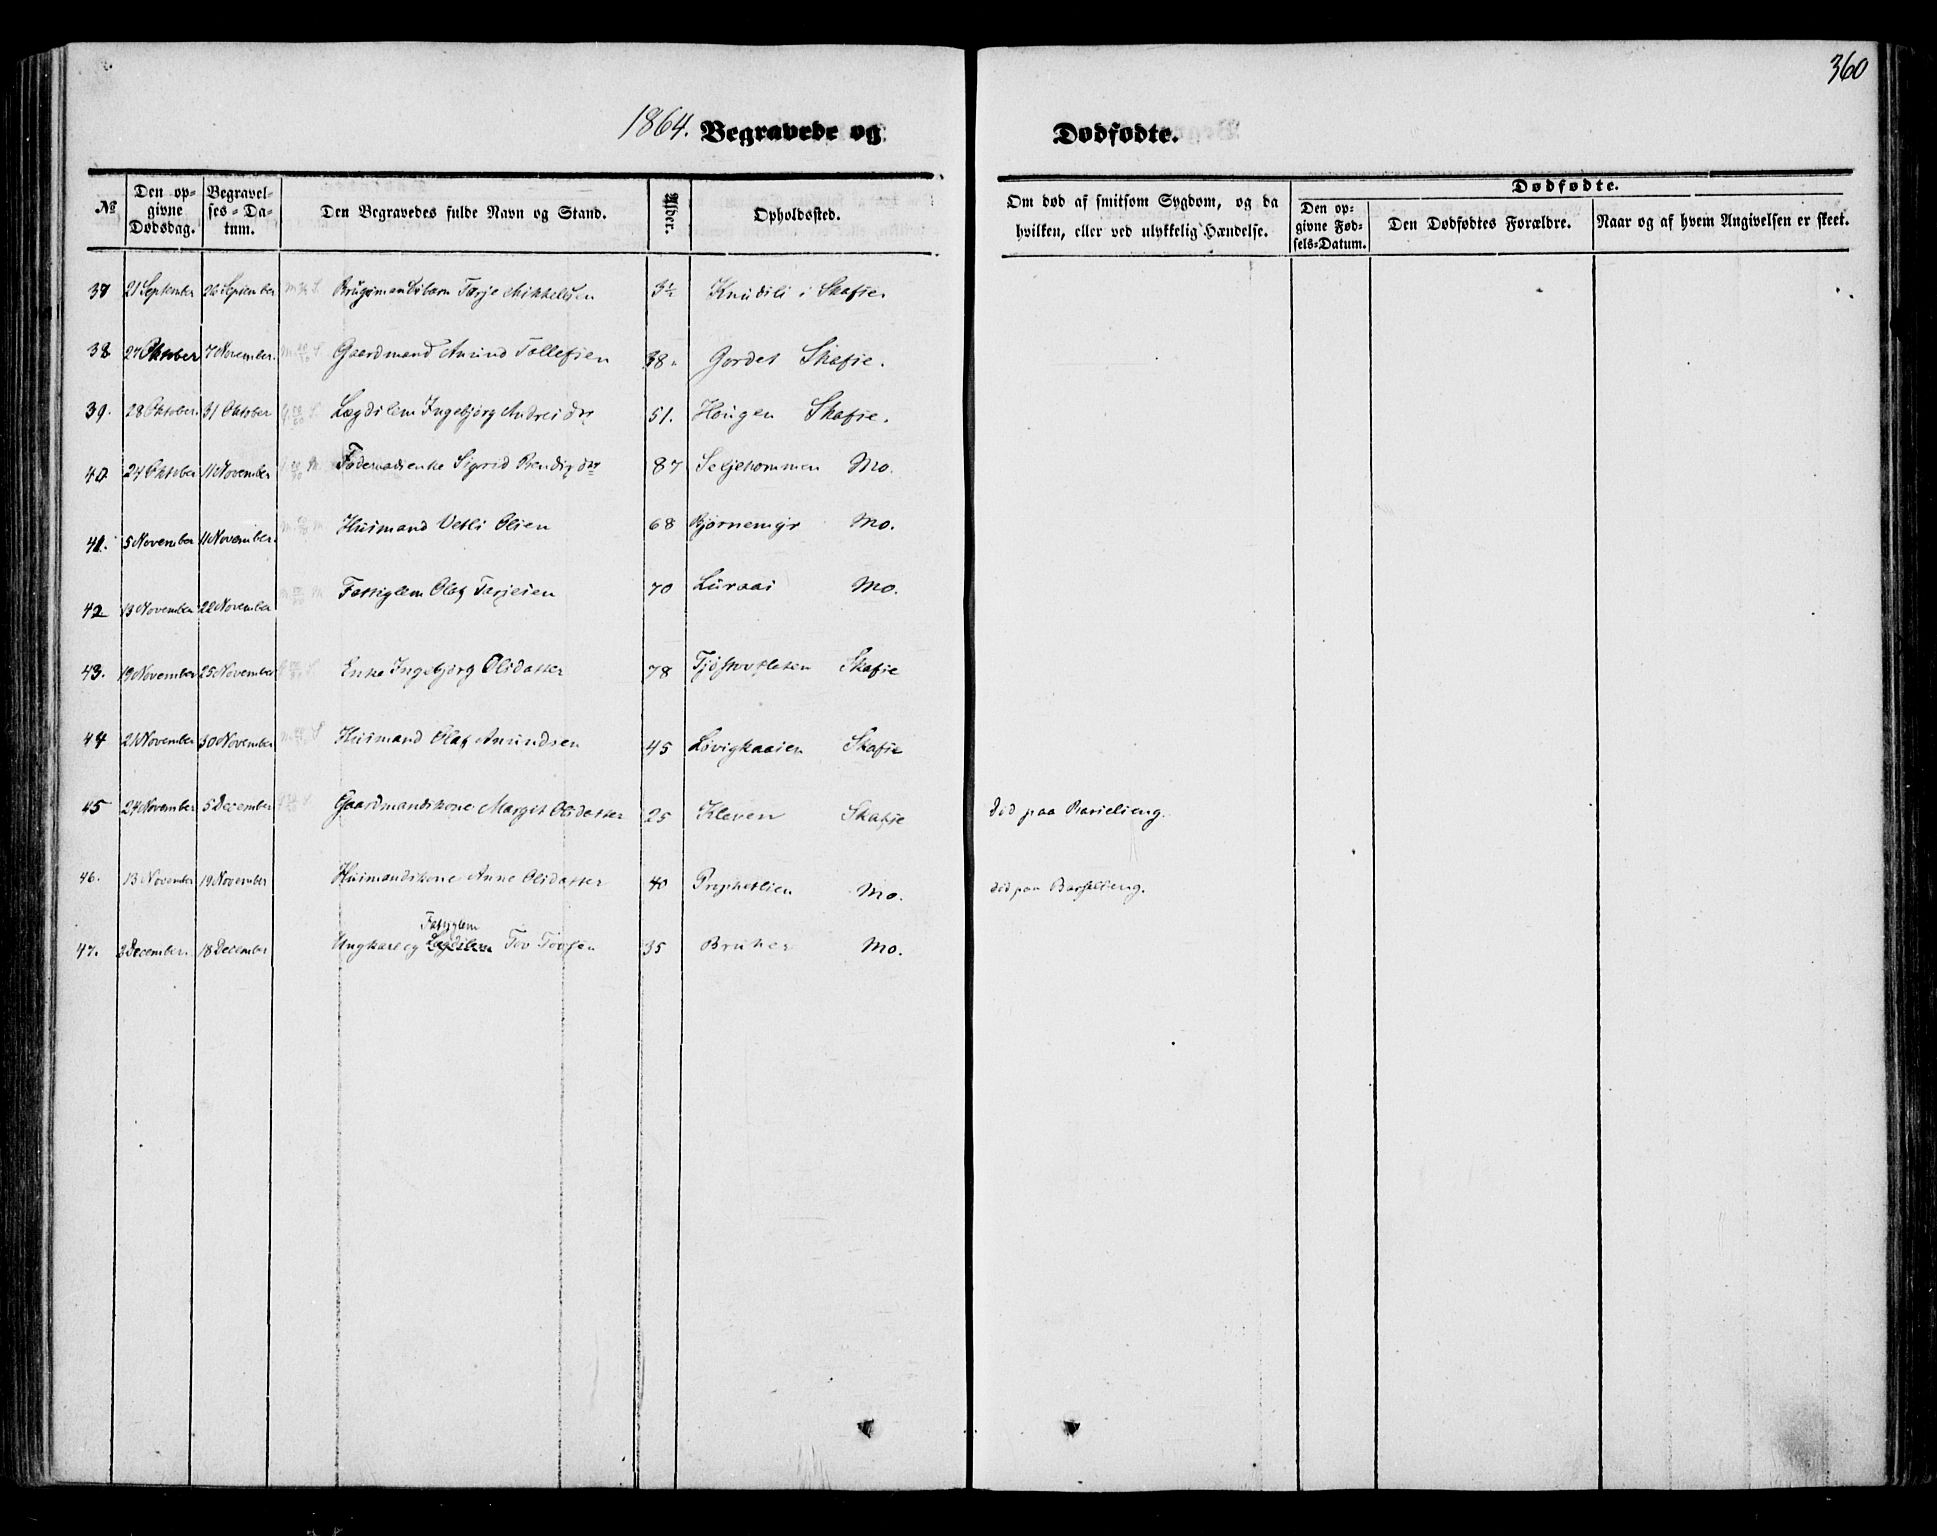 360
1864. Begravede og Dødfødte.
№ Den opgivne Dødsdag. Begravelses-Datum. Den Begravedes fulde Navn og Stand. Alder. Opholdssted. Om død af smitsom Sygdom, og da hvilken, eller ved ulykkelig Hændelse. Dødfødte. Den opgivne Fødsels-Datum. Den Dødfødtes Forældre. Naar og af hvem Angivelsen er skeet.
37 21 September 26 September Brugsmandsbarn Tarje Mikkelsen 3½ Knudsli i Skafse.
38 27 Oktober 7 November. Gaardmand Anund Tollefsen 38. Gordet Skafse.
39. 28 Oktober. 31 Oktober Lægdslem Ingebjørg Andresdtr 51. Hougen Skafse.
40 24 Oktober 11 November Føderaadsenke Sigrid dtr 87 Seljehommen Mo.
41. 5 November 11 November. Husmand Vetli Olsen 68 Bjørnemyr Mo.
42 13 November 22 November Fattiglem Olaf Tarjesen 70 Luraas Mo.
43. 19 November 25 November Enke Ingebjørg Olsdatter 78 Skafse
44 21 November 30 November Husmand Olaf Anundsen 45 Skafse
45 24 November 5 December Gaardmandskone Margit Olsdatter 25 Kleven Skafse død paa Barselseng.
46. 13 November 19 November Husmandskone Anne Olsdatter 40 Mo. død paa Barselseng.
Fattiglem
47. 3 December. 18 December Ungkarl og Lægdslem Tov Tovsen 35 Mo.